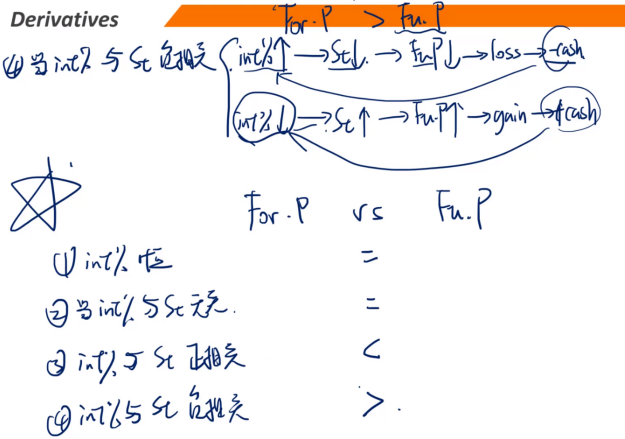 Derivatives
For.P > Fu.P
④当int% 与 St 负相关 { int%↑ → St↓. → Fu.P↓ → loss → -cash
int%↓ → St↑ → Fu.P↑ → gain → +cash
For.P vs Fu.P
① int% 恒 =
② 当int% 与 St 无关. =
③ int% 与 St 正相关 <
④ int% 与 St 负相关 > .